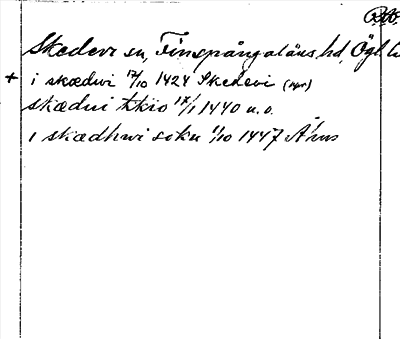 Skedevi sn, Finspångaläns hd, Ögl
+ i skædwi 12/10 1424 Skedevi (npr)
skædui kkio 17/1 1440 u.o.
i skædhwi sokn 4/10 1447 Åhus